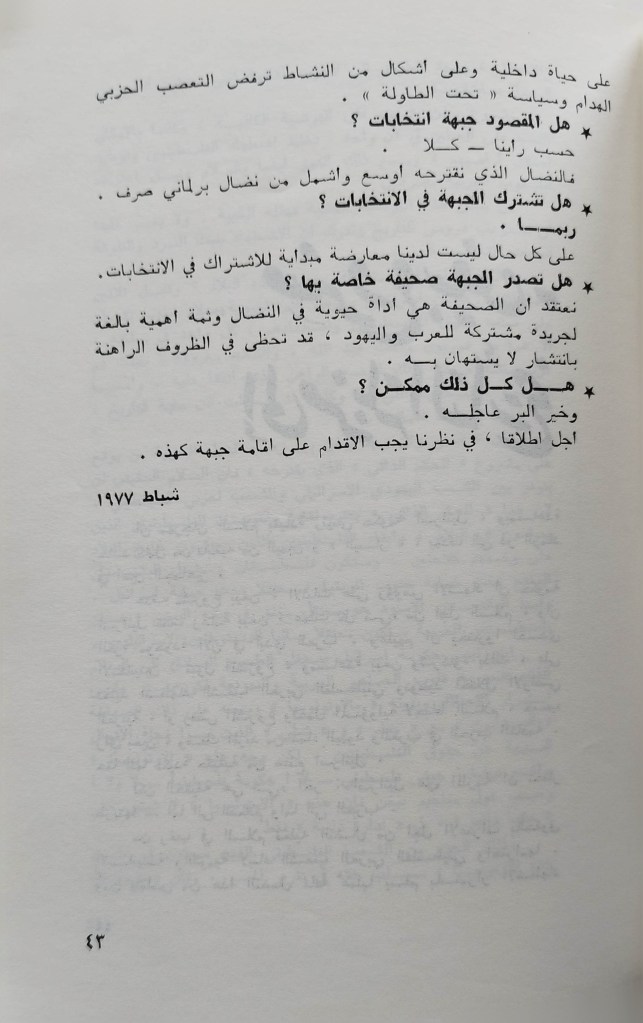 على حياة داخلية وعلى اشكال من النشاط ترفض التعصب الحزبي
الهدام وسياسة « تحت الطاولة » .
★ هل المقصود جبهة انتخابات ؟
حسب راينا ــ كــلا .
فالنضال الذي نقترحه اوسع واشمل من نضال برلماني صرف .
★ هل تشترك الجبهة في الانتخابات ؟
ربمـــا .
على كل حال ليست لدينا معارضة مبداية للاشتراك في الانتخابات.
★ هل تصدر الجبهة صحيفة خاصة بها ؟
نعتقد ان الصحيفة هي اداة حيوية في النضال وثمة اهمية بالغة
لجريدة مشتركة للعرب واليهود ، قد تحظى في الظروف الراهنة
بانتشار لا يستهان بــه .
★ هــل كل ذلك ممكــن ؟
وخير البر عاجلــه .
اجل اطلاقا ، في نظرنا يجب الاقدام على اقامة جبهة كهذه .
شباط ١٩٧٧
٤٣